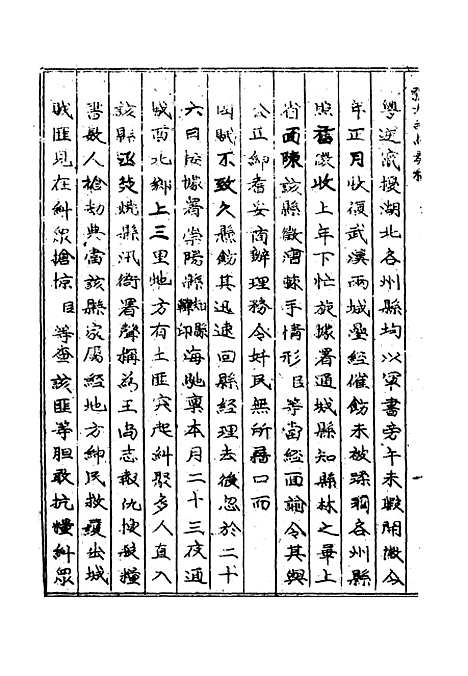 粤逆竄擾湖北各州縣均以軍書旁午未暇開徵今
年正月收復武漢兩城疊經催飭未被蹂躪各州縣
照舊徵收上年下忙旋據署通城縣知縣林之華上
省面陳該縣徵漕棘手情形臣等當經面諭令其與
公正紳耆妥商辦理務令奸民無所藉口而
國賦不致久懸飭其迅速回縣經理去後忽於二十
六日據署崇陽縣知縣 印海馳稟本月二十三夜通
城西北鄉上三里地方有土匪突起糾聚多人直入
該縣城焚燒縣汛衙署聲稱為王尚志報仇搜殺糧
書數人搶劫典當該縣家屬經地方紳民救護出城
賊匪現在糾眾搶掠臣等查該匪等膽敢抗糧糾眾
一